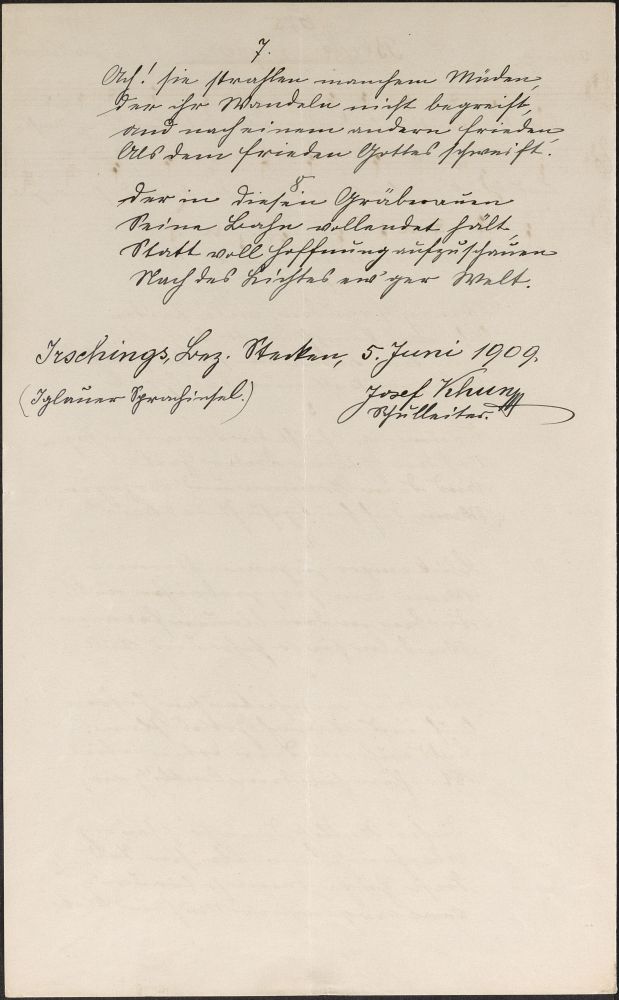 7.
Ach! sie strahlen manchem Müden,
Der ihr Wandeln nicht begreift,
Und nach einem andern Frieden
Als dem Frieden Gottes schweift.
8
Der in diesen Gräberauen
Seine Bahn vollendet hält
Statt voll Hoffnung aufzuschauen
Nach des Lichtes ew'ger Welt.
Irschings, Bez. Stecken, 5. Juni 1909.
(Iglauer Sprachinsel.)
Josef Khun
Schulleiter.